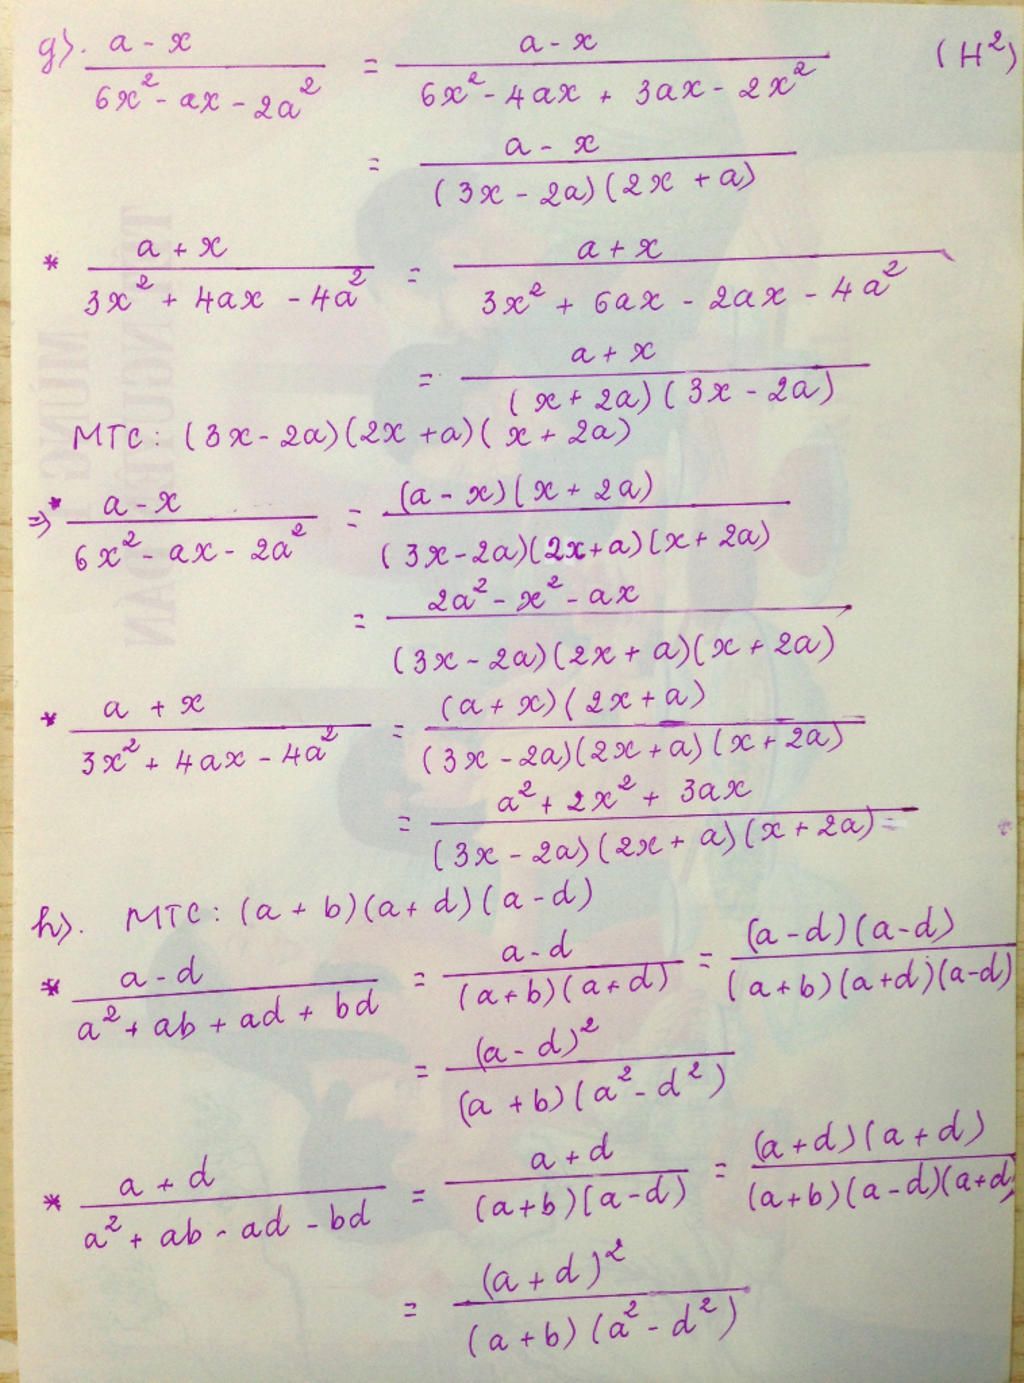 g). (a - x)/(6x² - ax - 2a²) = (a - x)/(6x² - 4ax + 3ax - 2x²) (H²)
= (a - x)/((3x - 2a)(2x + a))
* (a + x)/(3x² + 4ax - 4a²) = (a + x)/(3x² + 6ax - 2ax - 4a²)
= (a + x)/((x + 2a)(3x - 2a))
MTC: (3x - 2a)(2x + a)(x + 2a)
=> * (a - x)/(6x² - ax - 2a²) = ((a - x)(x + 2a))/((3x - 2a)(2x + a)(x + 2a))
= (2a² - x² - ax)/((3x - 2a)(2x + a)(x + 2a))
* (a + x)/(3x² + 4ax - 4a²) = ((a + x)(2x + a))/((3x - 2a)(2x + a)(x + 2a))
= (a² + 2x² + 3ax)/((3x - 2a)(2x + a)(x + 2a))
h). MTC: (a + b)(a + d)(a - d)
* (a - d)/(a² + ab + ad + bd) = (a - d)/((a + b)(a + d)) = ((a - d)(a - d))/((a + b)(a + d)(a - d))
= (a - d)²/((a + b)(a² - d²))
* (a + d)/(a² + ab - ad - bd) = (a + d)/((a + b)(a - d)) = ((a + d)(a + d))/((a + b)(a - d)(a + d))
= (a + d)²/((a + b)(a² - d²))